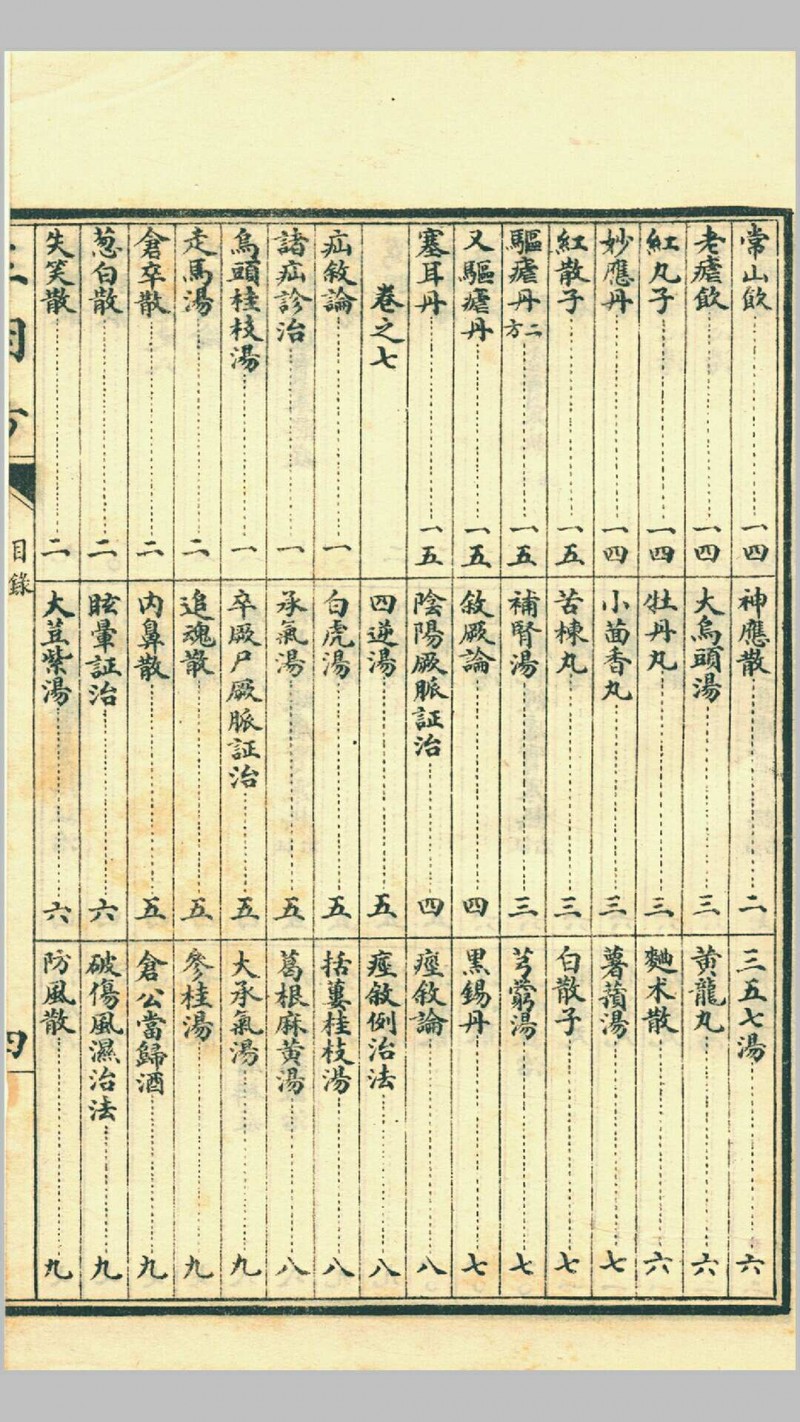 常山飲一四
老瘧飲一四
紅丸子一四
妙應丹一四
紅散子一五
驅瘧丹二方一五
又驅瘧丹一五
塞耳丹一五
卷之七
疝敘論一
諸疝診治一
烏頭桂枝湯一
走馬湯二
倉卒散二
葱白散二
失笑散二
神應散二
大烏頭湯三
牡丹丸三
小茴香丸三
苦楝丸三
補腎湯三
敘厥論四
陰陽厥脈証治四
四逆湯五
白虎湯五
承氣湯五
卒厥尸厥脈証治五
追魂散五
內鼻散五
眩暈証治六
大荳紫湯六
三五七湯六
黃龍丸六
麯朮散六
薯蕷湯七
白散子七
芎藭湯七
黑錫丹七
痙敘論八
痙敘例治法八
括蔞桂枝湯八
葛根麻黃湯八
大承氣湯九
參桂湯九
倉公當歸酒九
破傷風濕治法九
防風散九
目錄
四